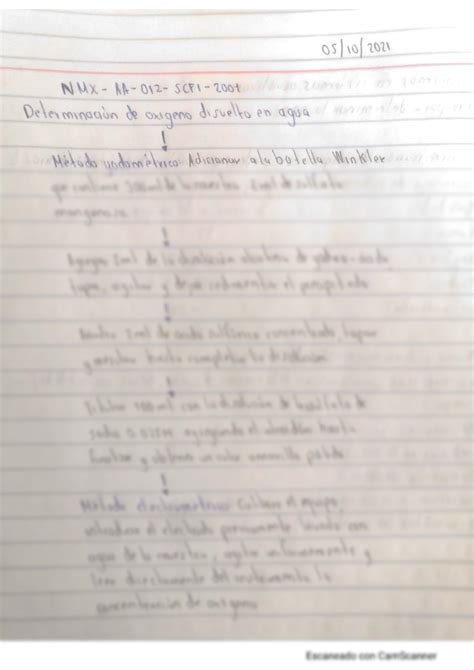 05/10/2021
NMX-AA-012-SCFI-2001
Determinación de oxigeno disuelto en agua
Método yodométrico Adicionar a la botella Winkler
que contiene 300 ml de la muestra 2 ml de sulfato
manganoso
Agregar 2ml de la disolución alcalina de yoduro-azida
tapar, agitar y dejar sedimentar el precipitado
2 ml de acido sulfurico concentrado, tapar
y hasta completar la disolución
Titular 100 ml con la disolución de tiosulfato de
sodio 0.025M agregando el almidón hasta
y obtener un color amarillo palido
Método electrometrico el equipo,
el electrodo previamente lavado con
agua de la muestra, agitar uniformemente y
leer directamente del instrumento la
concentración de oxigeno
Escaneado con CamScanner